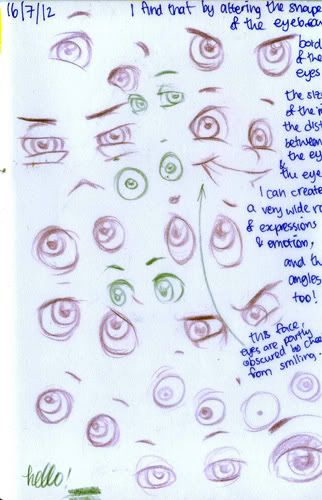 16/7/12
I find that by altering the shape
of the eyebrow
of the
eyes
the siz
of the
the dist
between
the ey
&
the eye
I can create
a very wide
of expressions
& emotion,
and th
angles
too!
this face,
eyes are partly
obscured by chee
from smiling.
hello!